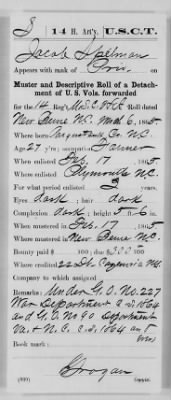 S | 14 H. Art'y. | U.S.C.T.
Jacob Spelman
Appears with rank of Priv. on
Muster and Descriptive Roll of a Detach-
ment of U. S. Vols. forwarded
for the 14 Reg't, U.S.C. Roll dated
New Berne N.C. 6, 1865.
Where born N.C.
Age 27 y'rs; occupation Farmer
When enlisted Feb. 17, 1865
Where enlisted Plymouth N.C.
For what period enlisted 3 years.
Eyes dark; hair dark
Complexion dark; height 5 ft. 6 in.
When mustered in Feb. 17, 1865
Where mustered in New Berne N.C.
Bounty paid $ 100; due $ 100
Where credited 22 Dt.
Company to which assigned
Remarks: Under G.O. No. 227
War Department C.S. 1864
and G.O. No 90 Department
Va. & N.C. C.S. 1864
Book mark:
Grogan
(339) Copyist.